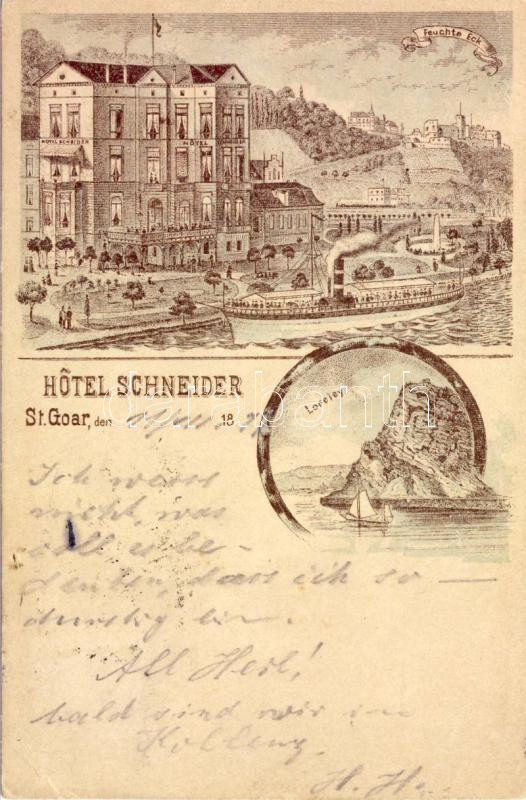 Feuchte Eck
HÔTEL SCHNEIDER
HÔTEL
HÔTEL SCHNEIDER
St. Goar, den 18
Loreley
darabanth
Ich weiss
nicht, was
soll es be-
deuten, dass ich so
durstig bin.
All Heil!
bald sind wir in
Koblenz.
H. H.